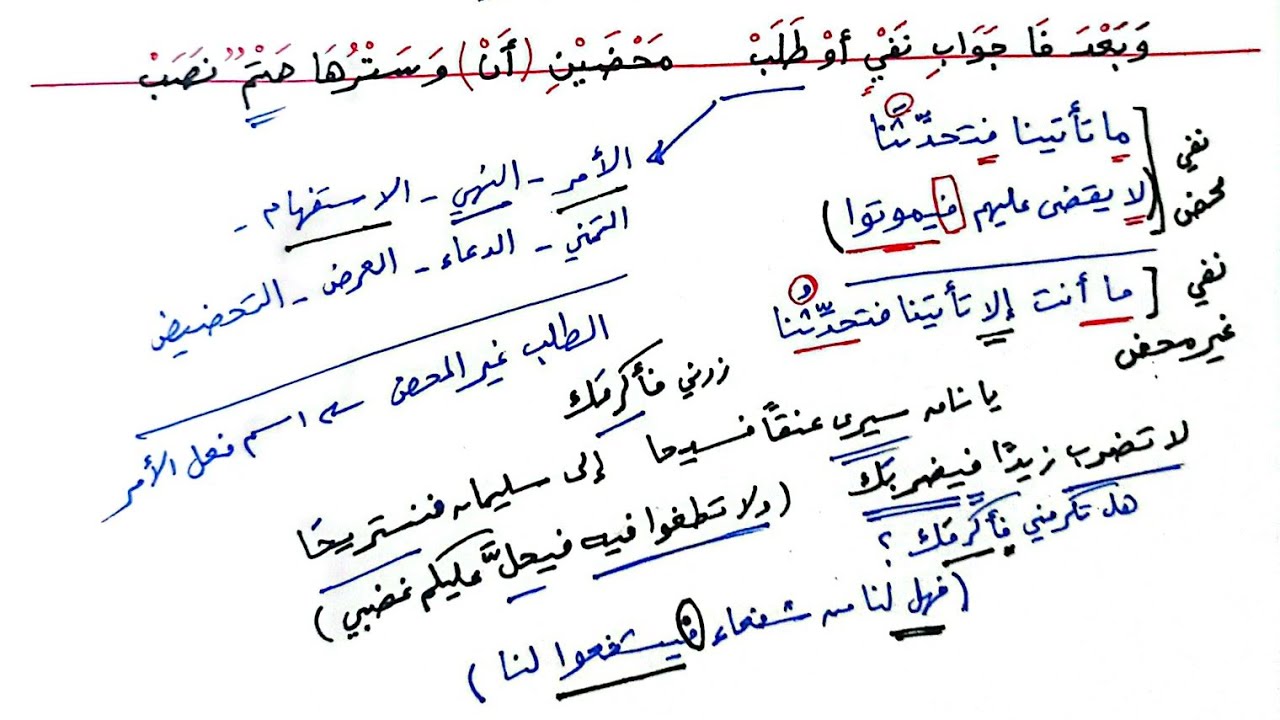 وَبَعْدَ فَا جَوَابِ نَفْيٍ أَوْ طَلَبْ مَحْضَيْنِ (أَنْ) وَسَتْرُهَا حَتْمٌ نَصَبْ
نفي محض
ما تأتينا فتحدّثَنا
(لا يقضى عليهم فيموتوا)
نفي غير محض
ما أنت إلا تأتينا فتحدّثُنا
الأمر - النهي - الاستفهام -
التمني - الدعاء - العرض - التحضيض
الطلب غير المحض ← اسم فعل الأمر
زرني فأكرمَك
يا ناق سيري عنقًا فسيحا إلى سليمان فنستريحَا
لا تضرب زيدًا فيضربَك
(ولا تطغوا فيه فيحلَّ عليكم غضبي)
هل تكرمني فأكرمَك ؟
(فهل لنا من شفعاء فيشفعوا لنا)